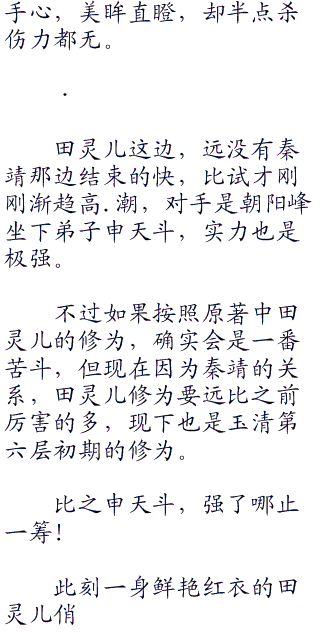 手心，美眸直瞪，却半点杀
伤力都无。
.
田灵儿这边，远没有秦
靖那边结束的快，比试才刚
刚渐趋高.潮，对手是朝阳峰
坐下弟子申天斗，实力也是
极强。
不过如果按照原著中田
灵儿的修为，确实会是一番
苦斗，但现在因为秦靖的关
系，田灵儿修为要远比之前
厉害的多，现下也是玉清第
六层初期的修为。
比之申天斗，强了哪止
一筹！
此刻一身鲜艳红衣的田
灵儿俏